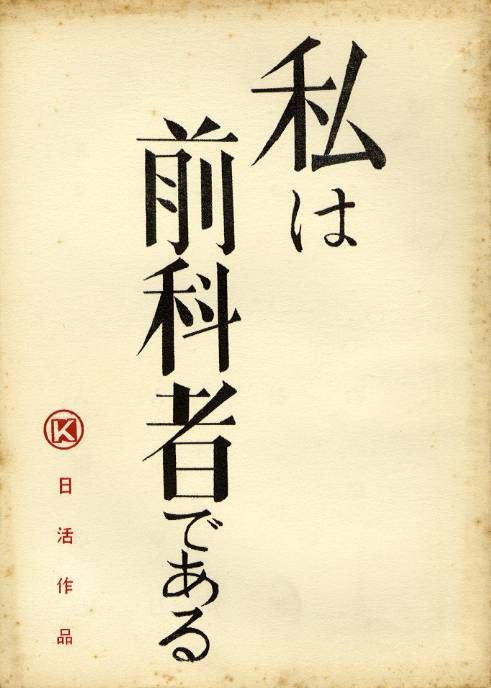 私は
前科者である
K
日活作品